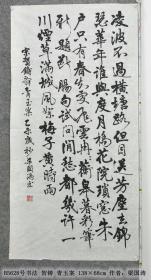 凌波不過横塘路但目送芳塵去錦
瑟華年誰與度月橋花院瑣窗朱
户只有春知處飛雲冉冉蘅皋暮彩筆
新題斷腸句試問閒愁都幾許一
川煙草滿城風絮梅子黄時雨
宋賀鑄詞青玉案
B5628号书法 贺铸 青玉案 138×68cm 作者：梁国涛